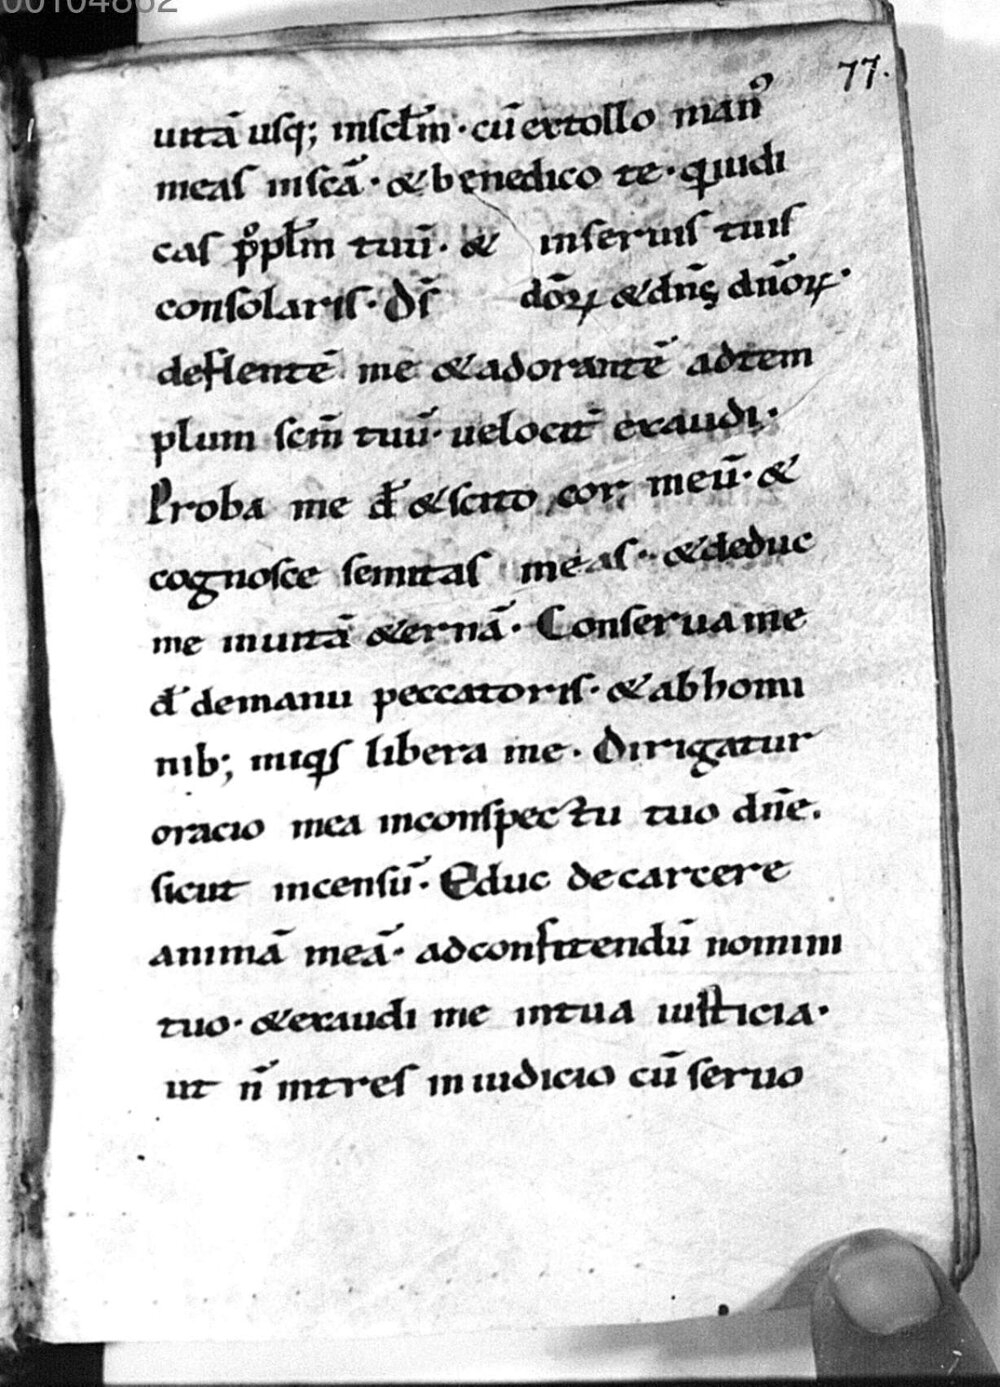 00104862
77.
uitā usq; insc̄lm · cū extollo man᷒
meas inscā · & benedico te · quiudi
cas p̊pl̄m tuū · & inseruis tuis
consolaris · ds̄ dōꝝ & dn̄s dn̄oꝝ ·
deflentē me & adorantē adtem
plum sc̄m tuū · uelocit̄ exaudi ·
Proba me d̄s & scito cor meū · &
cognosce semitas meas · & deduc
me inuitā &ernā · Conserua me
d̄s demanu peccatoris · & abhomi
nib; iniq̄s libera me · Dirigatur
oracio mea inconspectu tuo dn̄e.
sicut incensū · Educ decarcere
animā meā · adconfitendū nomini
tuo · & exaudi me intua iusticia ·
ut n̄ intres in iudicio cū seruo